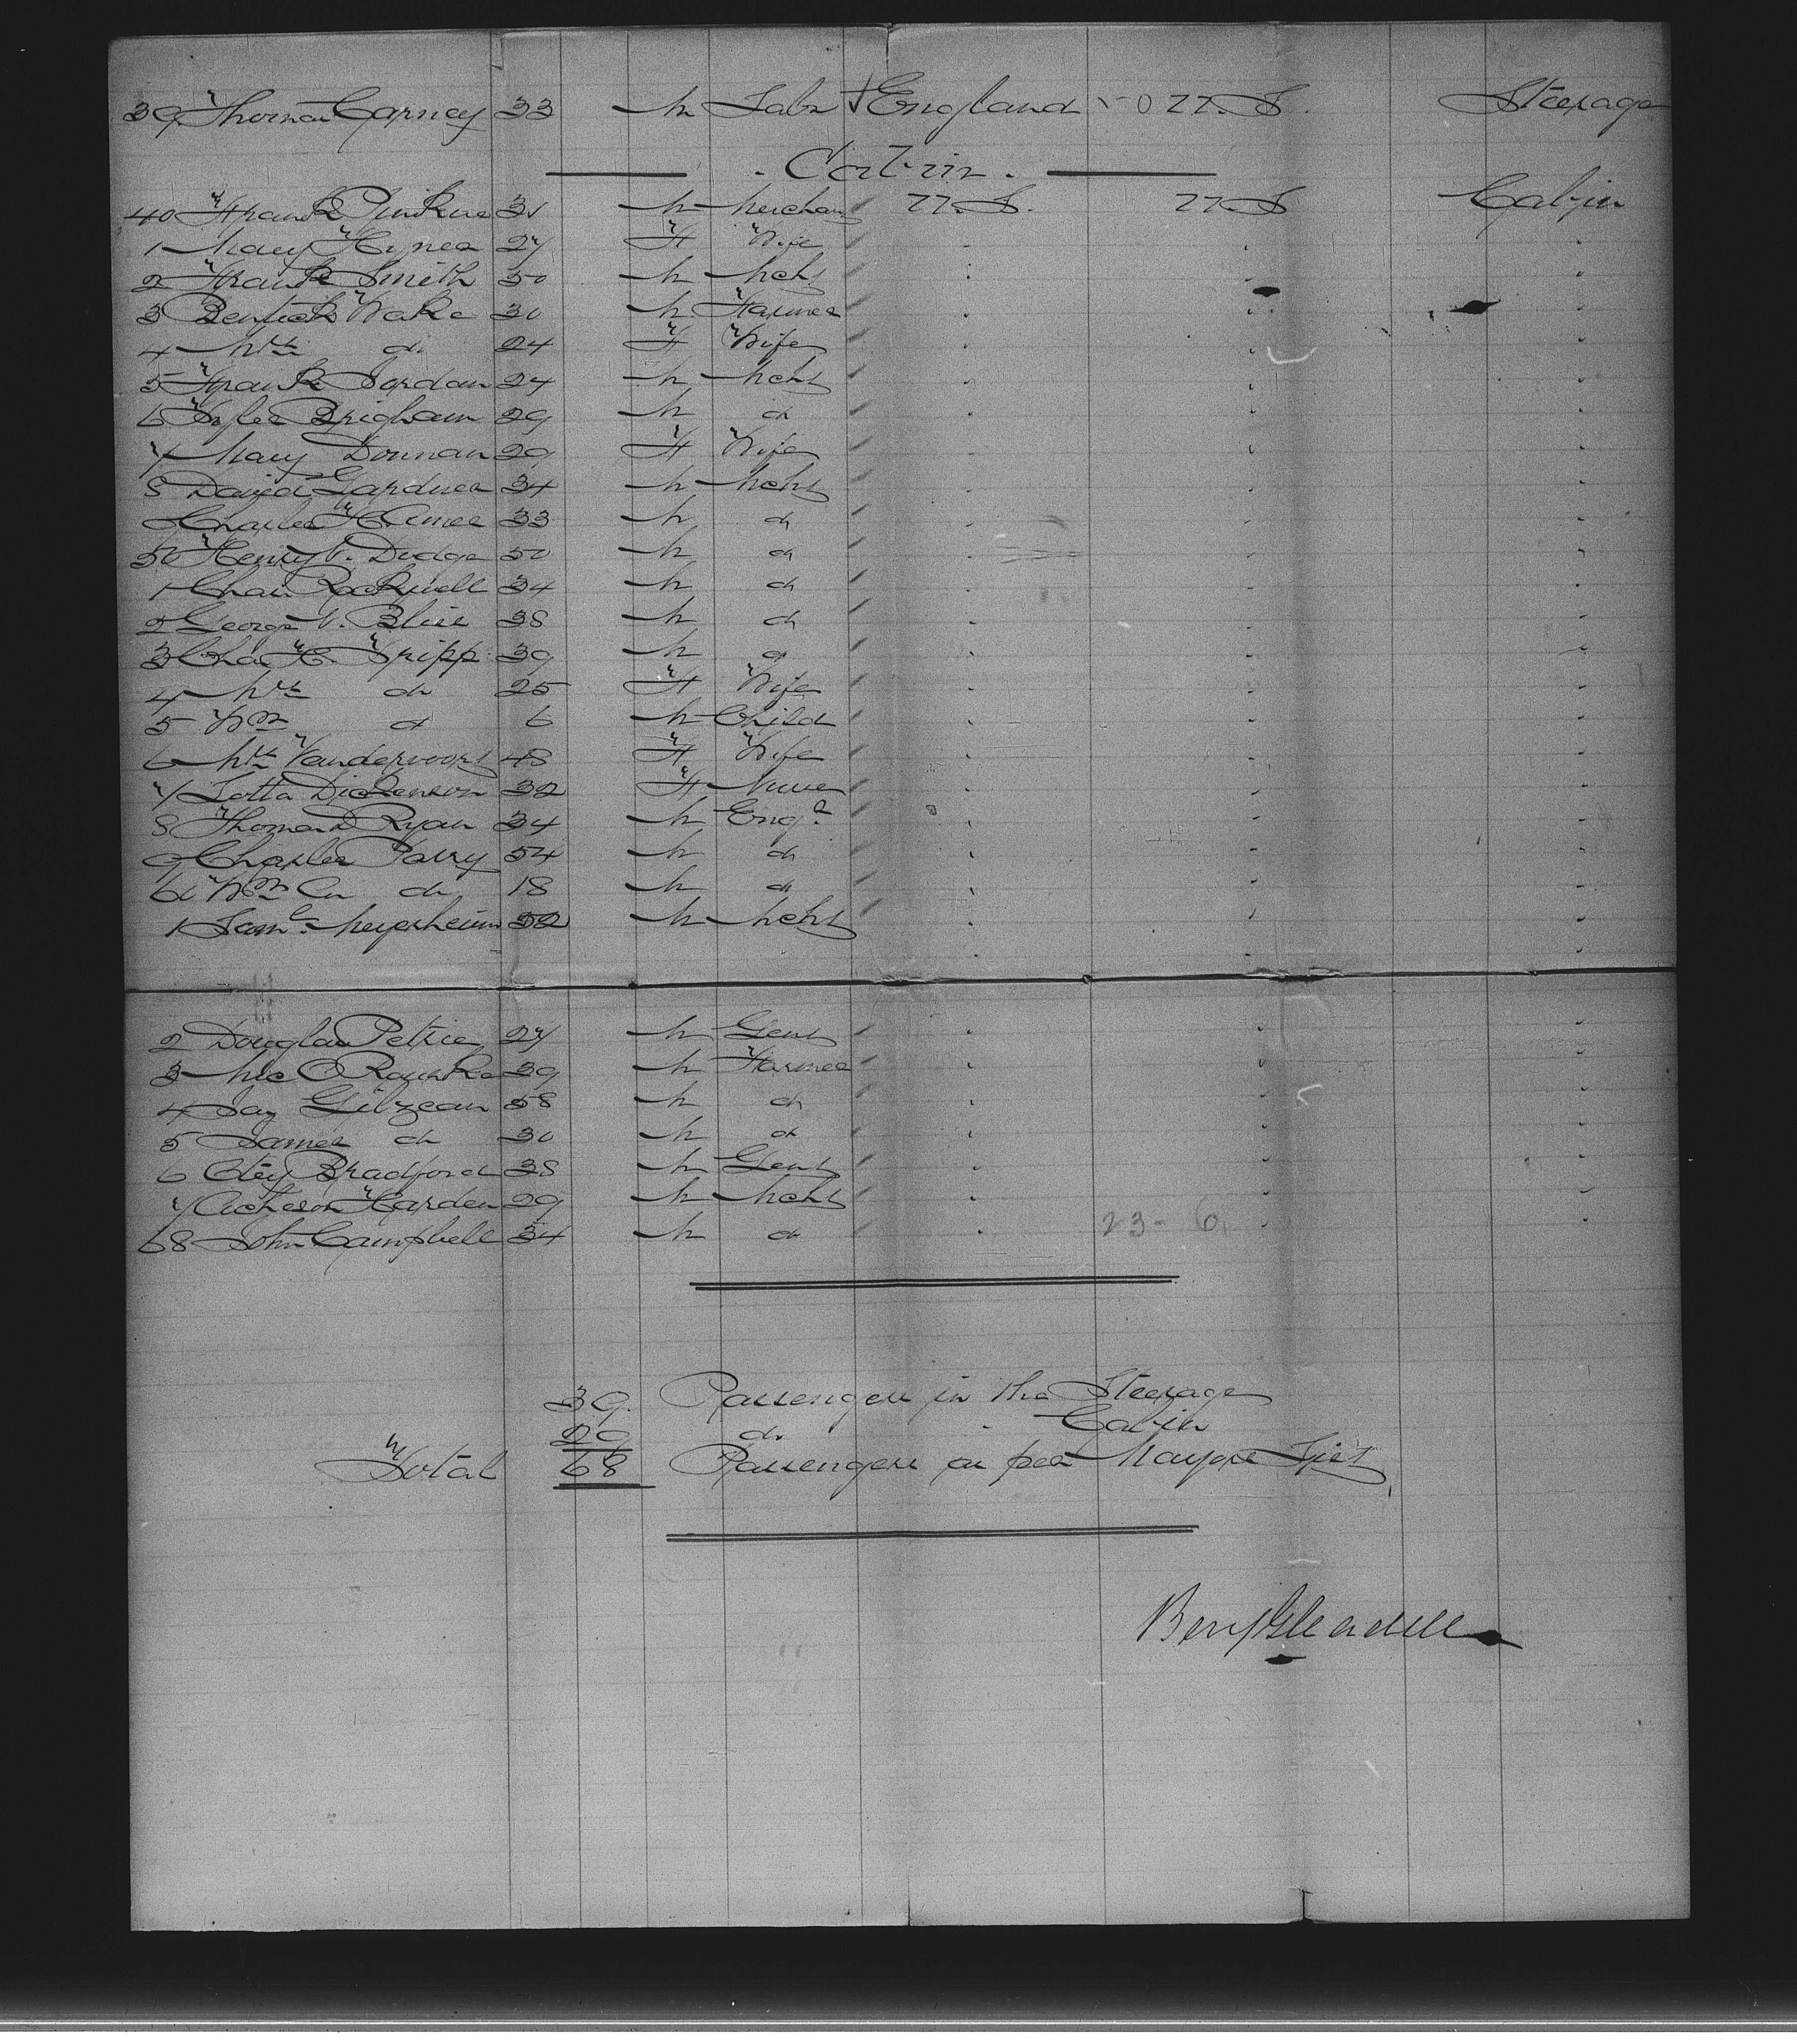 39 Thomas Carney 33 M Labr England U.S. Steerage
Cabin
40 Frank 31 M Merchant U.S. U.S. Cabin
1 Mary Hynes 27 F Wife
2 Frank Smith 50 M Mcht
3 Wake 30 M Farmer
4 Mrs do 24 F Wife
5 Frank Jordan 24 M Mcht
6 Brigham 29 M do
7 Mary Dornan 29 F Wife
8 David Gardner 34 M Mcht
9 Charles H Ames 33 M do
50 Henry V. Dodge 50 M do
1 Chas Rockwell 34 M do
2 George V. Bliss 38 M do
3 Chas H. Tripp 39 M do
4 Mrs do 25 F Wife
5 Wm do 6 M Child
6 Mrs Vandervoort 48 F Wife
7 Lotta Dickenson 32 F Nurse
8 Thomas D Ryan 34 M Engr
9 Charles Parry 54 M do
60 Wm do 18 M do
1 Saml Meyerheim 52 M Mcht
2 Douglas Petrie 27 M Gent
3 Mc O Rourke 39 M Farmer
4 Jas Gilzean 58 M do
5 James do 30 M do
6 Bradford 38 M Gent
7 Acheson Harden 29 M Mcht
68 John Campbell 34 M do
23 - 6
39 Passengers in the Steerage
29 do " Cabin
Total 68 Passengers as per List